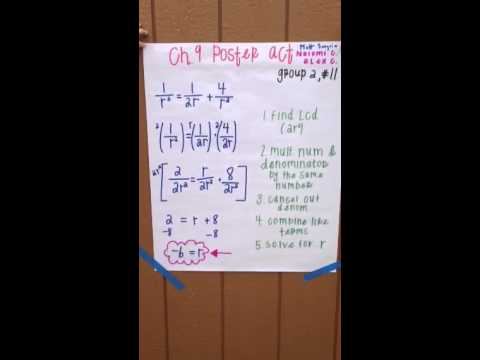 Ch 9 Poster act
Naiomi C.
Alex C.
group 2, #11
1/r² = 1/2r + 4/r²
²(1/r²) = ʳ(1/2r) + ²(4/2r)
2r²[2/2r² = r/2r² + 8/2r²]
2 = r + 8
-8 -8
-6 = r
1. find Lcd
2. mult num &
denominator
by the same
number
3. cancel out
denom
4. combine like
terms
5. solve for r